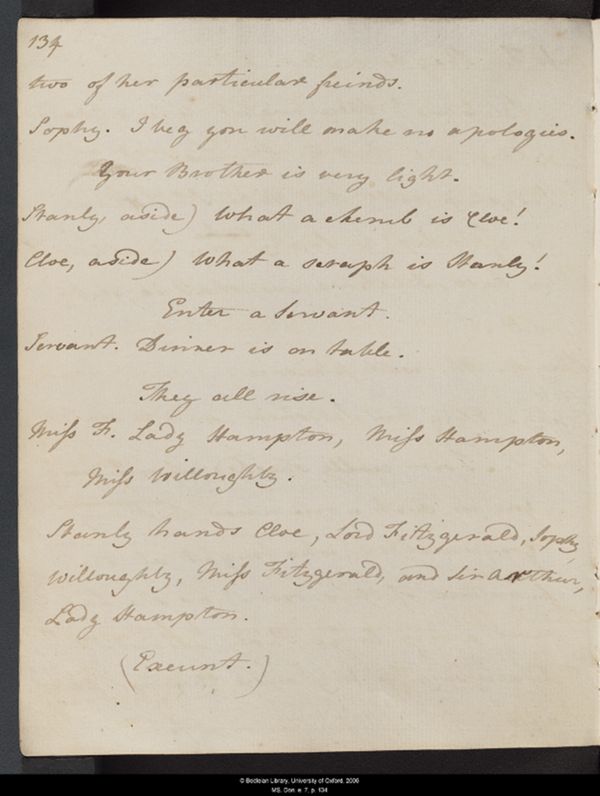 134
two of her particular freinds.
Sophy. I beg you will make no apologies.
Your Brother is very light.
Stanly, aside) What a cherub is Cloe!
Cloe, aside) What a seraph is Stanly!
Enter a Servant.
Servant. Dinner is on table.
They all rise.
Miſs F. Lady Hampton, Miſs Hampton,
Miſs Willoughby.
Stanly hands Cloe, Lord Fitzgerald, Sophy
Willoughby, Miſs Fitzgerald, and Sir Arthur,
Lady Hampton.
(Exeunt.)
© Bodleian Library, University of Oxford, 2006
MS. Don. e. 7, p. 134